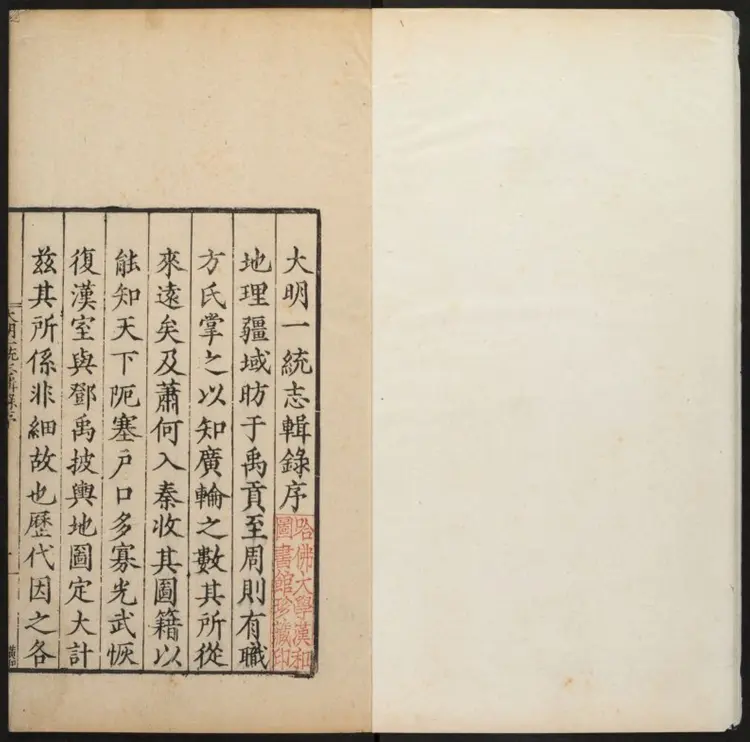 大明一統志輯錄序
地理疆域昉于禹貢至周則有職
方氏掌之以知廣輪之數其所從
來遠矣及蕭何入秦收其圖籍以
能知天下阨塞戶口多寡光武恢
復漢室與鄧禹披輿地圖定大計
茲其所係非細故也歷代因之各
哈佛大學漢和
圖書館珍藏印